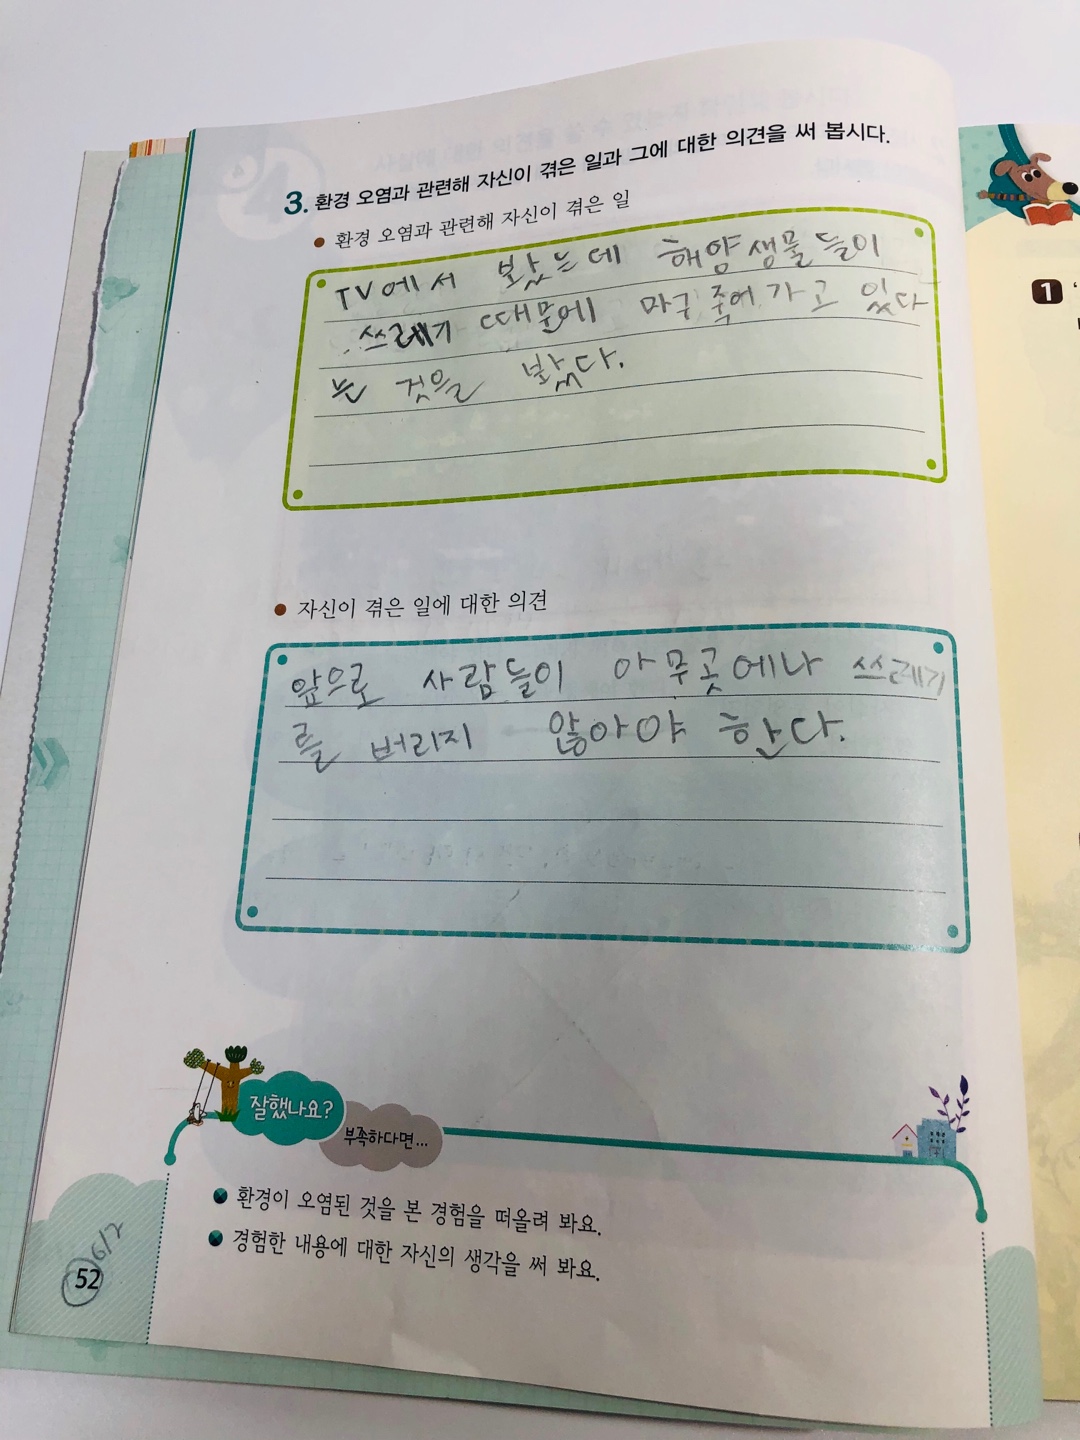 3. 환경 오염과 관련해 자신이 겪은 일과 그에 대한 의견을 써 봅시다.
● 환경 오염과 관련해 자신이 겪은 일
TV에서 봤는데 해양생물들이
쓰레기 때문에 마구 죽어가고 있다
는 것을 봤다.
● 자신이 겪은 일에 대한 의견
앞으로 사람들이 아무곳에나 쓰레기
를 버리지 않아야 한다.
잘했나요?
부족하다면...
환경이 오염된 것을 본 경험을 떠올려 봐요.
경험한 내용에 대한 자신의 생각을 써 봐요.
6/2
52
1